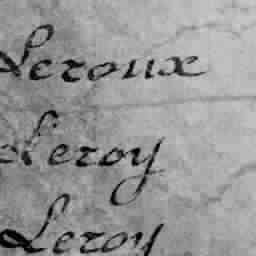 Leroux
Leroy
Leroy